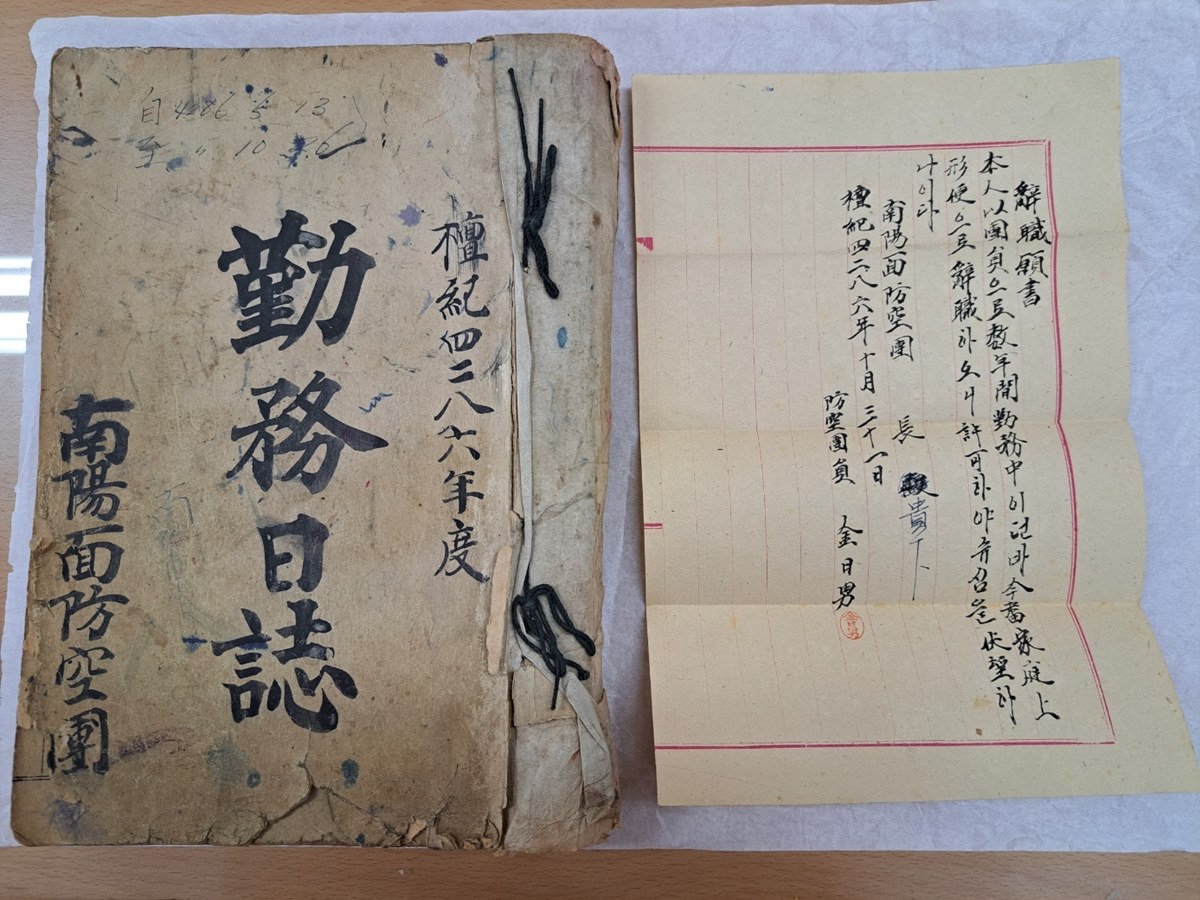 自 4286 5 13
至 〃 10 30
檀紀四二八六年度
勤務日誌
南陽面防空團
辭職願書
本人以團員으로数年間勤務中이던바今番家庭上
形便으로辭職하오니許可하야쥬심을伏望하
나이다
南陽面防空團長 貴下
檀紀四二八六年十月三十一日
防空團員 金日男